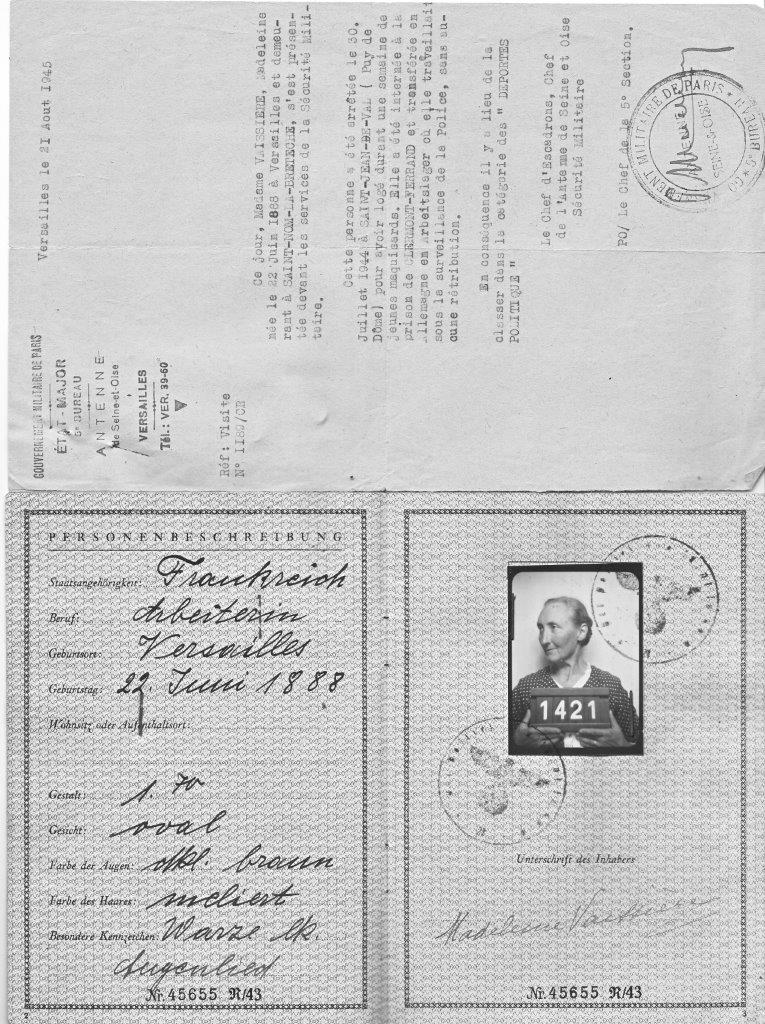 GOUVERNEMENT MILITAIRE DE PARIS
ÉTAT-MAJOR
5e BUREAU
ANTENNE
de Seine-et-Oise
VERSAILLES
Tél.: VER. 39-60
Versailles le 21 Aout 1945
Réf: Visite
N° 1180/CR
Ce jour, Madame VAISSIERE, Madeleine
née le 22 Juin 1888 à Versailles et demeu-
rant à SAINT-NOM-LA-BRETECHE, s'est présen-
tée devant les services de la Sécurité Mili-
taire.
Cette personne a été arrêtée le 30.
Juillet 1944 à SAINT-JEAN-DE-VAL ( Puy de
Dôme) pour avoir logé durant une semaine de
jeunes maquisards. Elle a été internée à la
prison de CLERMONT-FERRAND et transférée en
Allemagne en Arbeitslager où elle travaillait
sous la surveillance de la Police, sans au-
cune rétribution.
En conséquence il y a lieu de la
classer dans la catégorie des " DEPORTES
POLITIQUE "
Le Chef d'Escadrons, Chef
de l'Antenne de Seine et Oise
Sécurité Militaire
PO/ Le Chef de la 5° Section.
MILITAIRE DE PARIS
5e BUREAU
SEINE-&-OISE
PERSONENBESCHREIBUNG
Staatsangehörigkeit: Frankreich
Beruf: Arbeiterin
Geburtsort: Versailles
Geburtstag: 22. Juni 1888
Wohnsitz oder Aufenthaltsort:
Gestalt: 1.70
Gesicht: oval
Farbe der Augen: dkl. braun
Farbe des Haares: meliert
Besondere Kennzeichen: Warze lk.
Augenlied
Nr. 45655 R/43
2
1421
Unterschrift des Inhabers
Madeleine Vaissiere
Nr. 45655 R/43
3